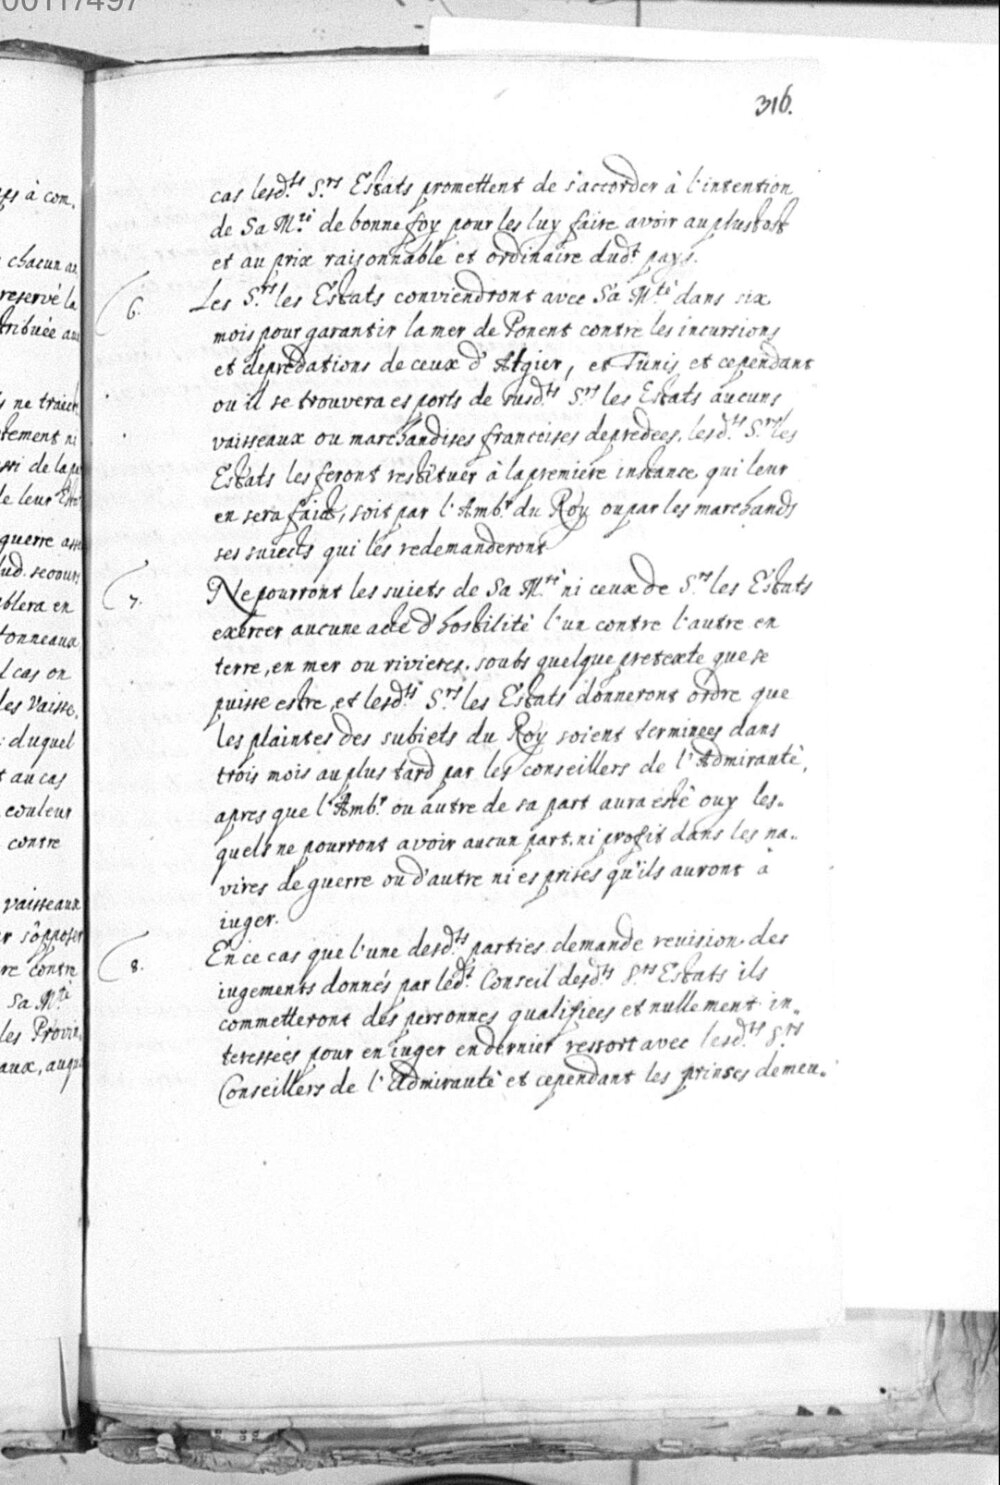 00117497
316.
cas lesd.ts S.rs Estats promettent de s'accorder à l'intention
de Sa M.té de bonne foy pour les luy faire avoir au plustost
et au prix raisonnable et ordinaire dud.t pays.
6. Les S.rs les Estats conviendront avec Sa M.té dans six
mois pour garantir la mer de Ponent contre les incursions
et depredations de ceux d'Algier, et Tunis, et cependant
ou il se trouvera es ports de susd.ts S.rs les Estats aucuns
vaisseaux ou marchandises françoises depredees, lesd.ts S.rs les
Estats les feront restituer à la premiere instance qui leur
en sera faict, soit par l'Amb.r du Roy ou par les marchands
ses suiects qui les redemanderont
7. Ne pourront les suiets de Sa M.té ni ceux de S.rs les Estats
exercer aucune acte d'hostilité l'un contre l'autre en
terre, en mer ou rivieres, soubs quelque pretexte que se
puisse estre, et lesd.ts S.rs les Estats donneront ordre que
les plaintes des subiets du Roy soient terminees dans
trois mois au plus tard par les conseillers de l'Admirauté,
apres que l'Amb.r ou autre de sa part aura esté ouy les-
quels ne pourront avoir aucun part, ni profit dans les na-
vires de guerre ou d'autre ni es prises qu'ils auront à
iuger.
8. En ce cas que l'une desd.ts parties demande revision des
iugements donnés par led.t Conseil desd.ts S.rs Estats ils
commetteront des personnes qualifiees et nullement in-
teressées pour en iuger en dernier ressort avec lesd.ts S.rs
Conseillers de l'Admirauté et cependant les prinses demeu-
à com,
chacun au
reservé la
tribuée aux
s ne traiter
guerre
blera en
tonneaux
cas on
les vaisse,
duquel
au cas
couleur
contre
vaisseaux
s'opposer
re contre
Sa M.té
les Provin,
aux,